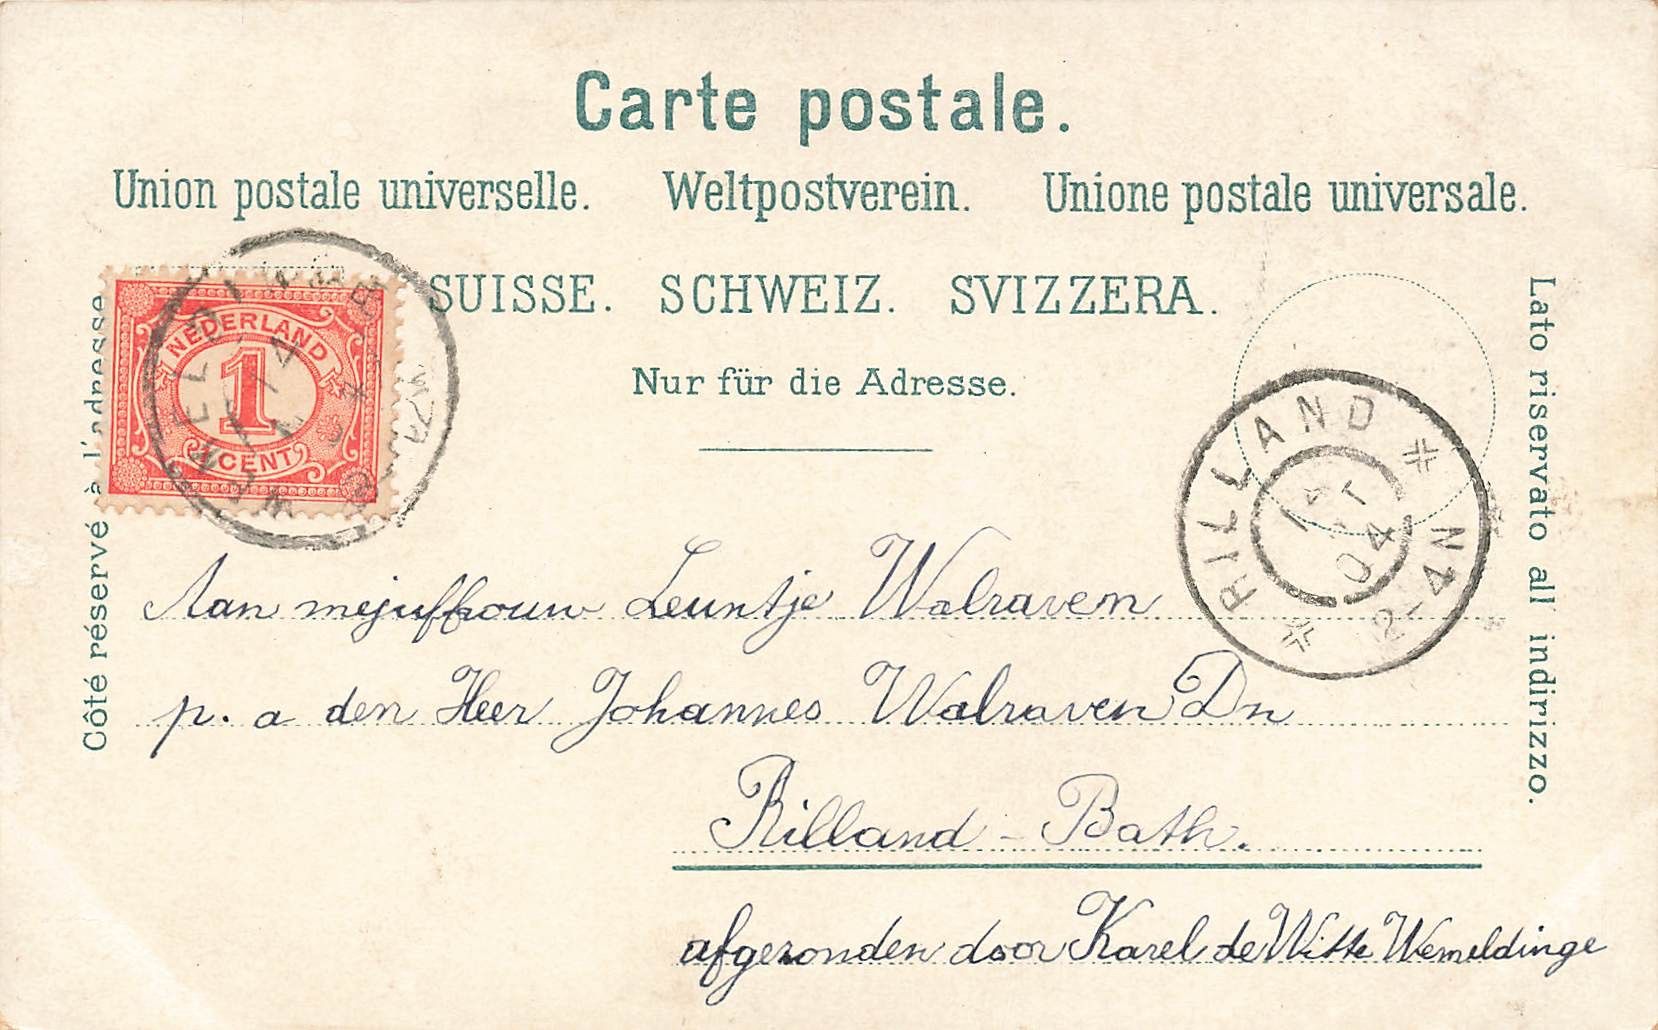 Carte postale.
Union postale universelle. Weltpostverein. Unione postale universale.
SUISSE. SCHWEIZ. SVIZZERA.
Nur für die Adresse.
Côté réservé à l'adresse
Lato riservato al indirizzo.
NEDERLAND
1
CENT
RILLAND
04
2-4N
Aan mejuffrouw Leuntje Walraven
p. a den Heer Johannes Walraven Dn
Rilland - Bath.
afgezonden door Karel de Witte Wemeldinge